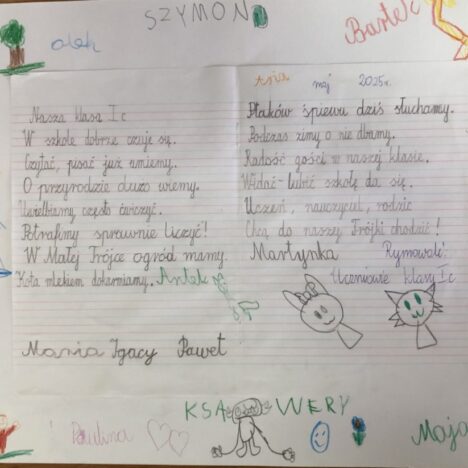 SZYMON
Bartek
olek
Nasza klasa I c
W szkole dobrze czuje się.
Czytać, pisać już umiemy.
O przyrodzie dużo wiemy.
Uwielbiamy często ćwiczyć.
Potrafimy sprawnie liczyć!
W Małej Trójce ogród mamy.
Kota mlekiem dokarmiamy.
Antek
maj 2025r.
Ptaków śpiewu dziś słuchamy.
Podczas zimy o nie dbamy.
Radość gości w naszej klasie.
Widać - lubić szkołę da się.
Uczeń, nauczyciel, rodzic
Chcą do naszej Trójki chodzić!
Martynka
Rymowali:
Uczniowie klasy I c
Maria Igacy Paweł
KSAWERY
Paulina
Maja